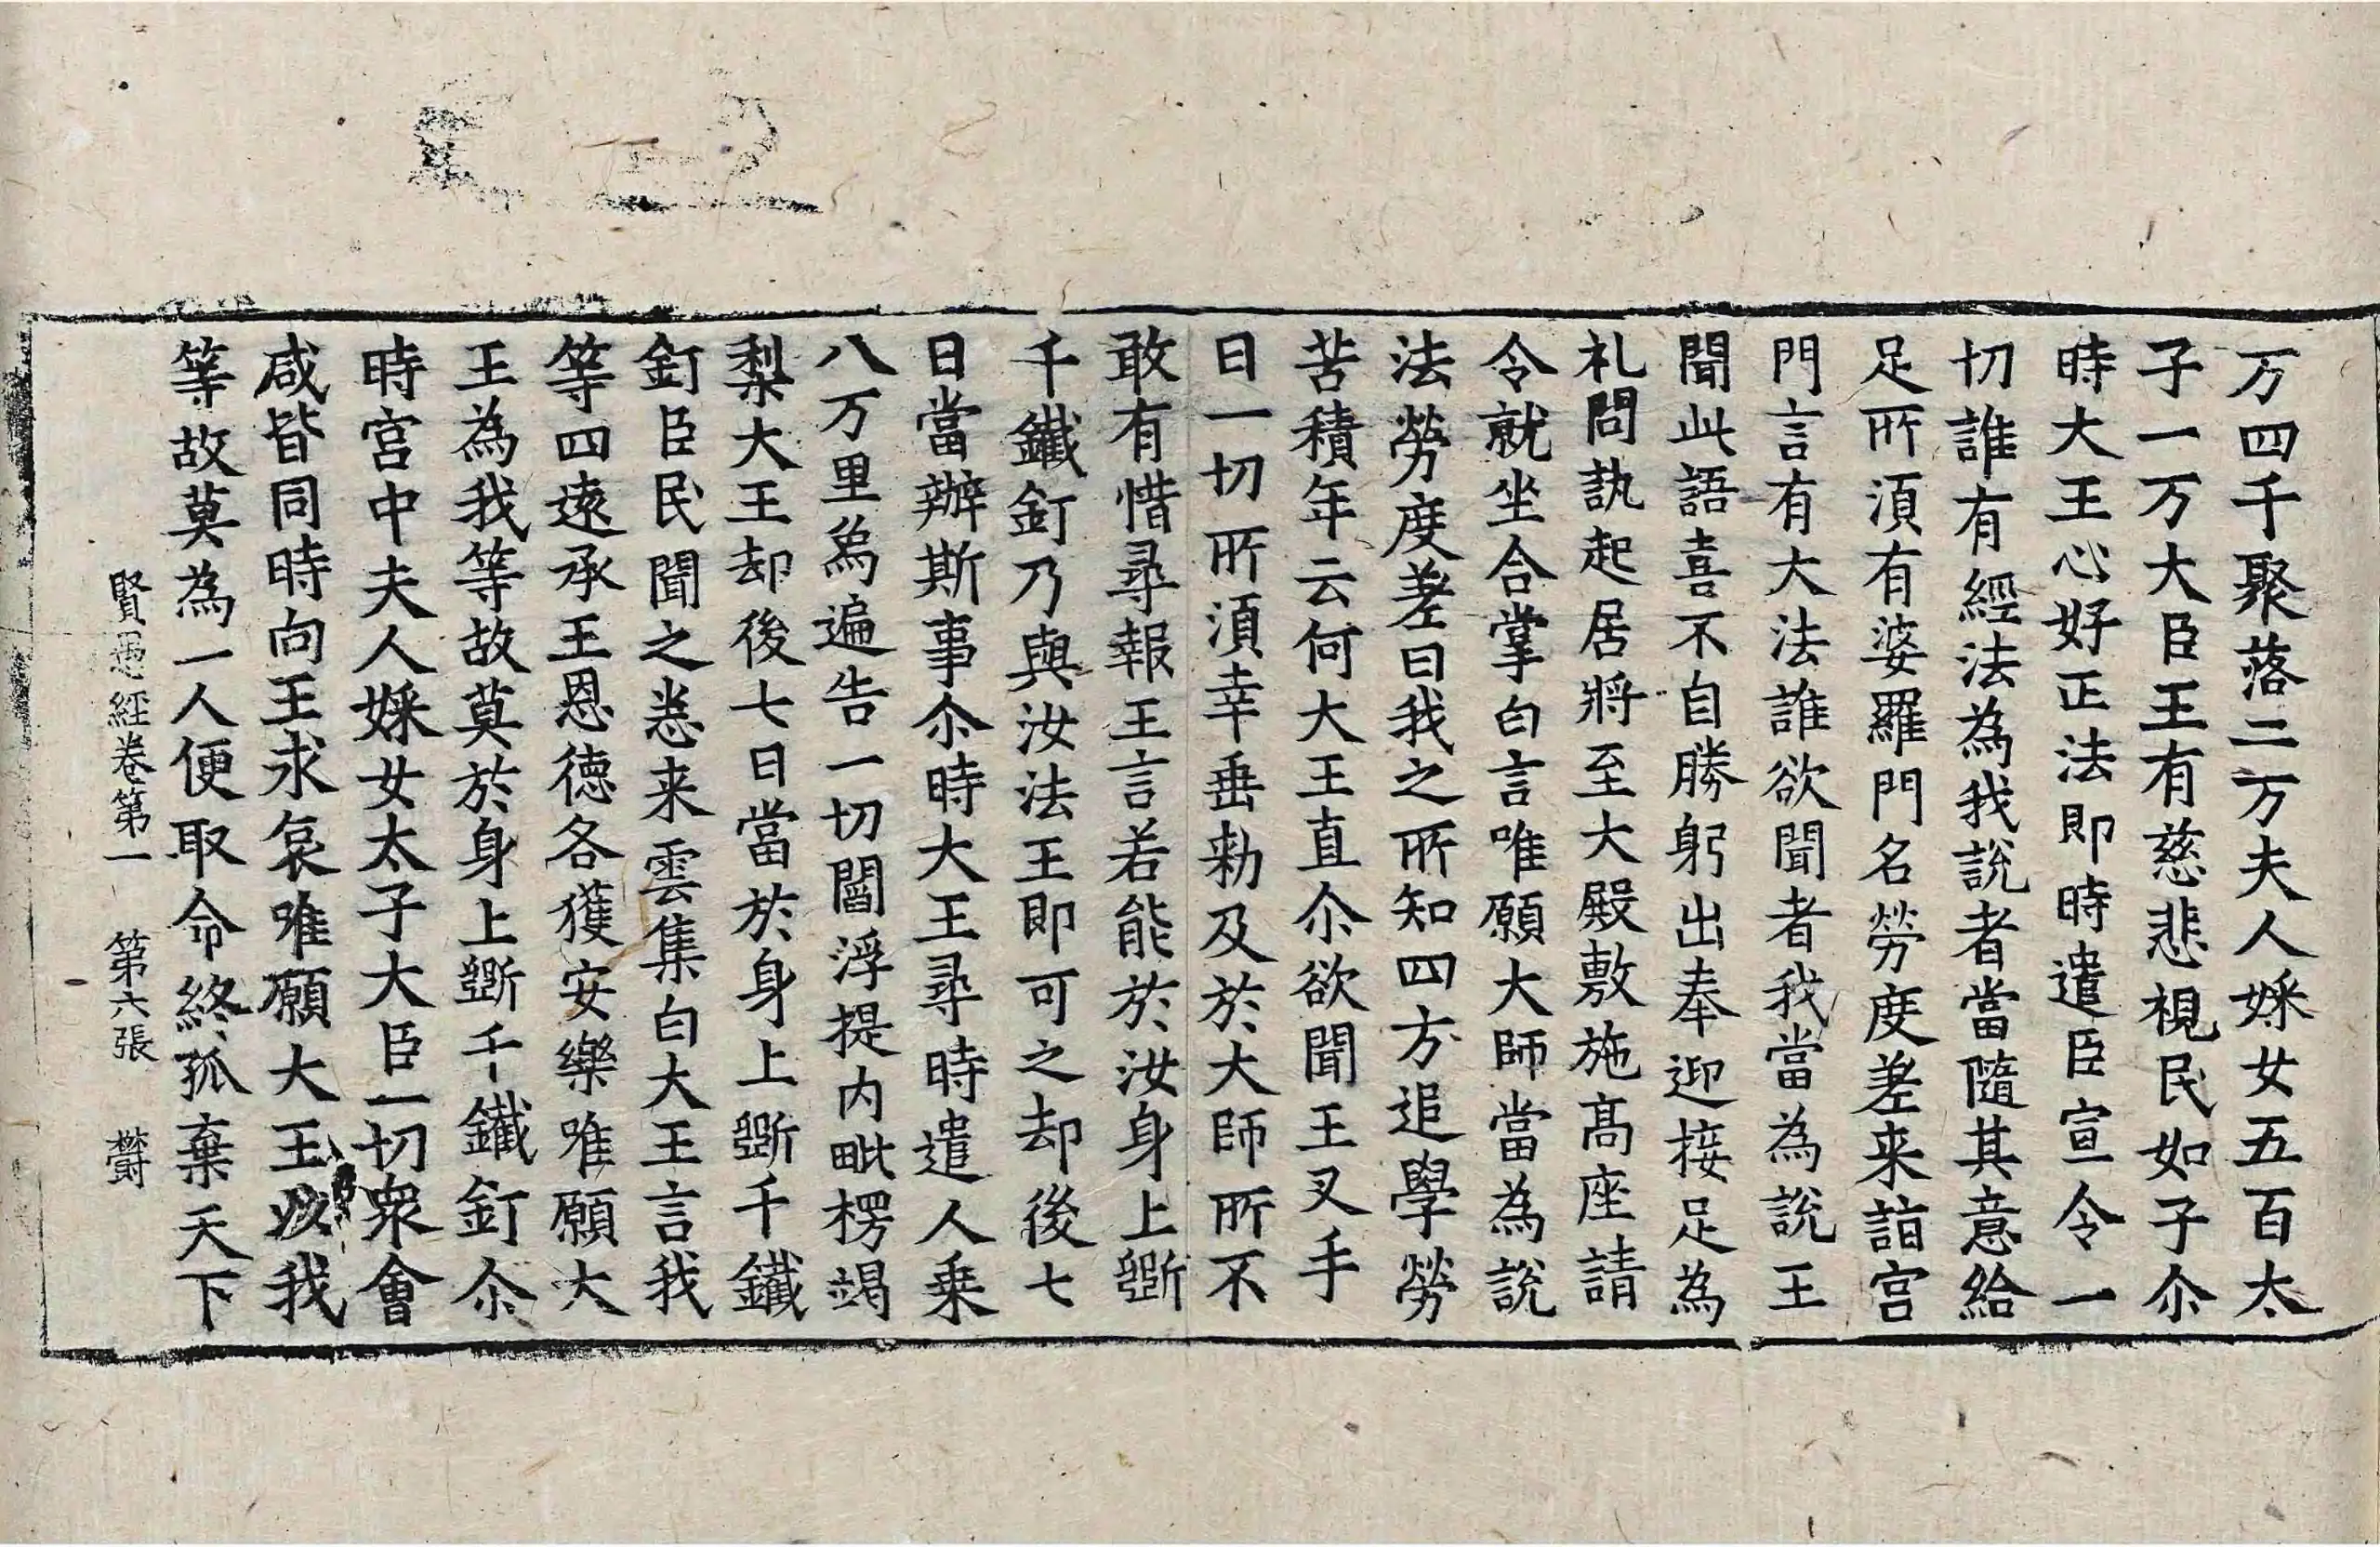 万四千聚落二万夫人婇女五百太
子一万大臣王有慈悲視民如子尒
時大王心好正法即時遣臣宣令一
切誰有經法為我說者當隨其意給
足所湏有婆羅門名勞度差来詣宮
門言有大法誰欲聞者我當為說王
聞此語喜不自勝躬出奉迎接足為
礼問訊起居將至大殿敷施髙座請
令就坐合掌白言唯願大師當為說
法勞度差曰我之所知四方追學勞
苦積年云何大王直尒欲聞王叉手
曰一切所湏幸垂勑及於大師所不
敢有惜尋報王言若能於汝身上斵
千鐵釘乃與汝法王即可之却後七
日當辦斯事尒時大王尋時遣人乗
八万里烏遍告一切閻浮提内毗楞竭
梨大王却後七日當於身上斵千鐵
釘臣民聞之悉来雲集白大王言我
等四遠承王恩德各獲安樂唯願大
王為我等故莫於身上斵千鐵釘尒
時宮中夫人婇女太子大臣一切衆會
咸皆同時向王求哀唯願大王以我
等故莫為一人便取命終孤棄天下
賢愚經卷第一 第六張 欝